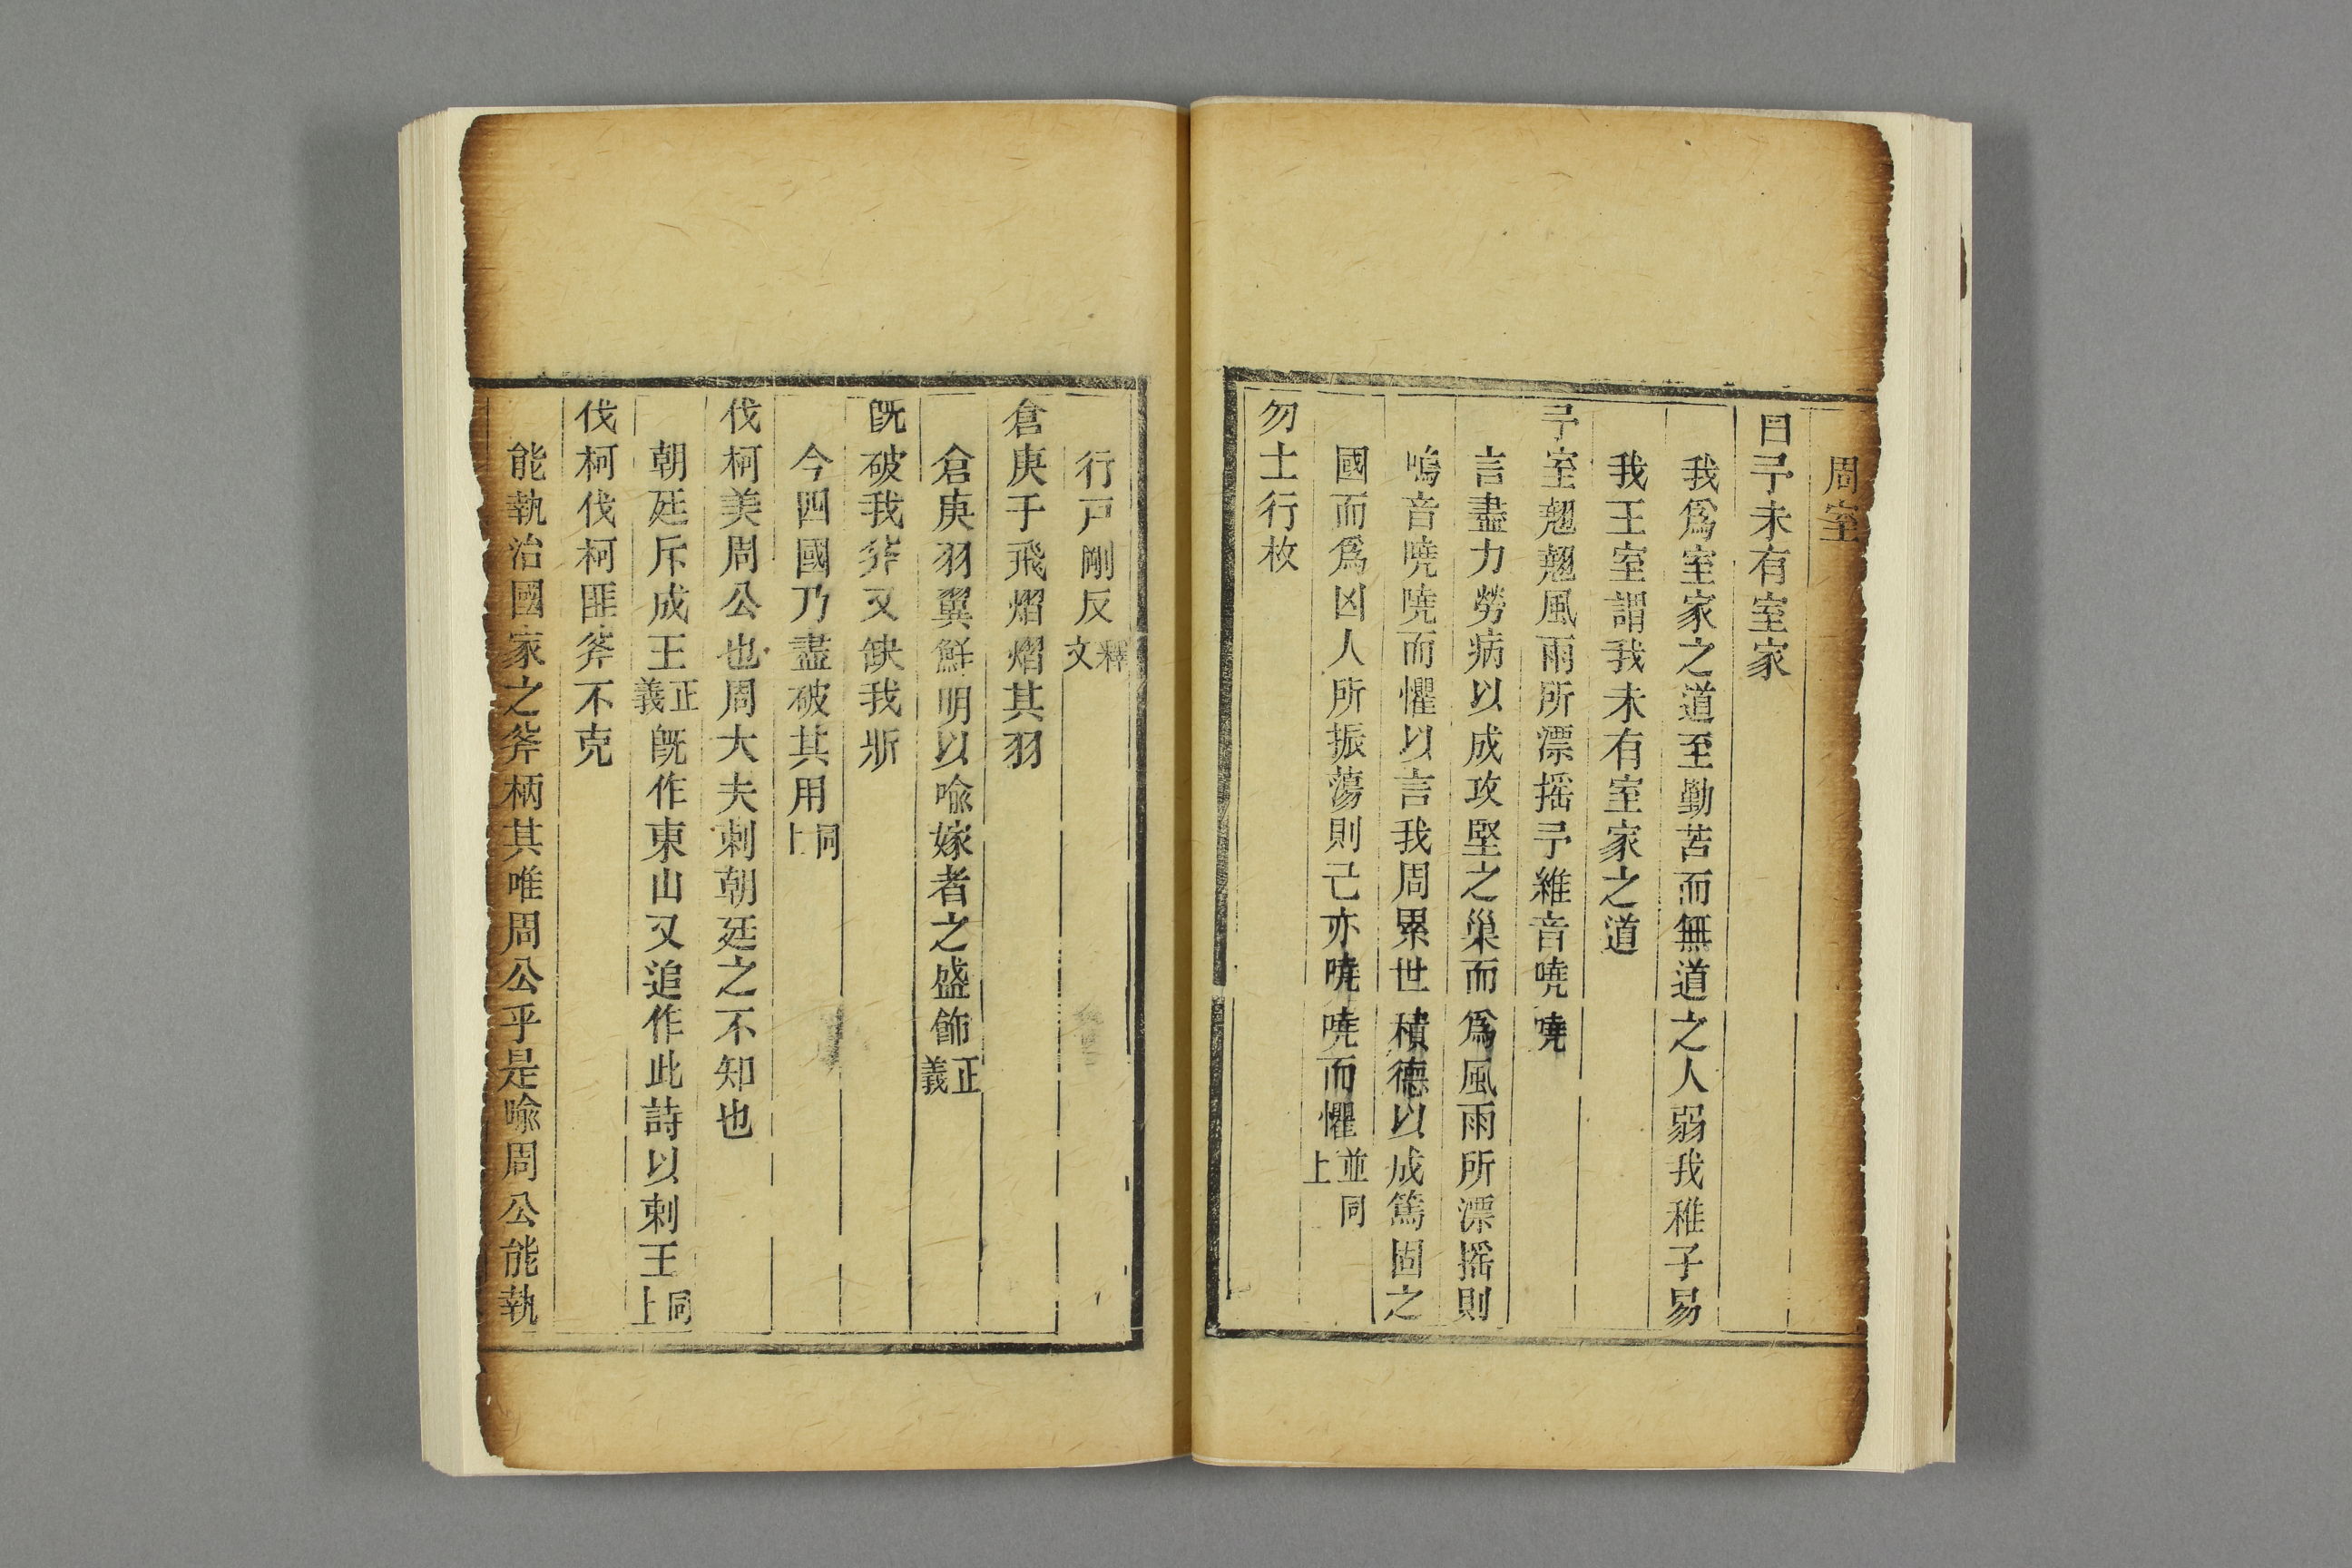 周室
曰予未有室家
我爲室家之道至勤苦而無道之人弱我稚子易
我王室謂我未有室家之道
予室翹翹風雨所漂揺予維音嘵嘵
言盡力勞病以成攻堅之巢而爲風雨所漂揺則
鳴音嘵嘵而懼以言我周累世積德以成篤固之
國而爲凶人所振蕩則己亦嘵嘵而懼並同上
勿士行枚
行戸剛反釋文
倉庚于飛熠熠其羽
倉庚羽翼鮮明以喩嫁者之盛飾正義
旣破我斧又缺我斨
今四國乃盡破其用同上
伐柯美周公也周大夫刺朝廷之不知也
朝廷斥成王正義旣作東山又追作此詩以刺王同上
伐柯伐柯匪斧不克
能執治國家之斧柄其唯周公乎是喩周公能執